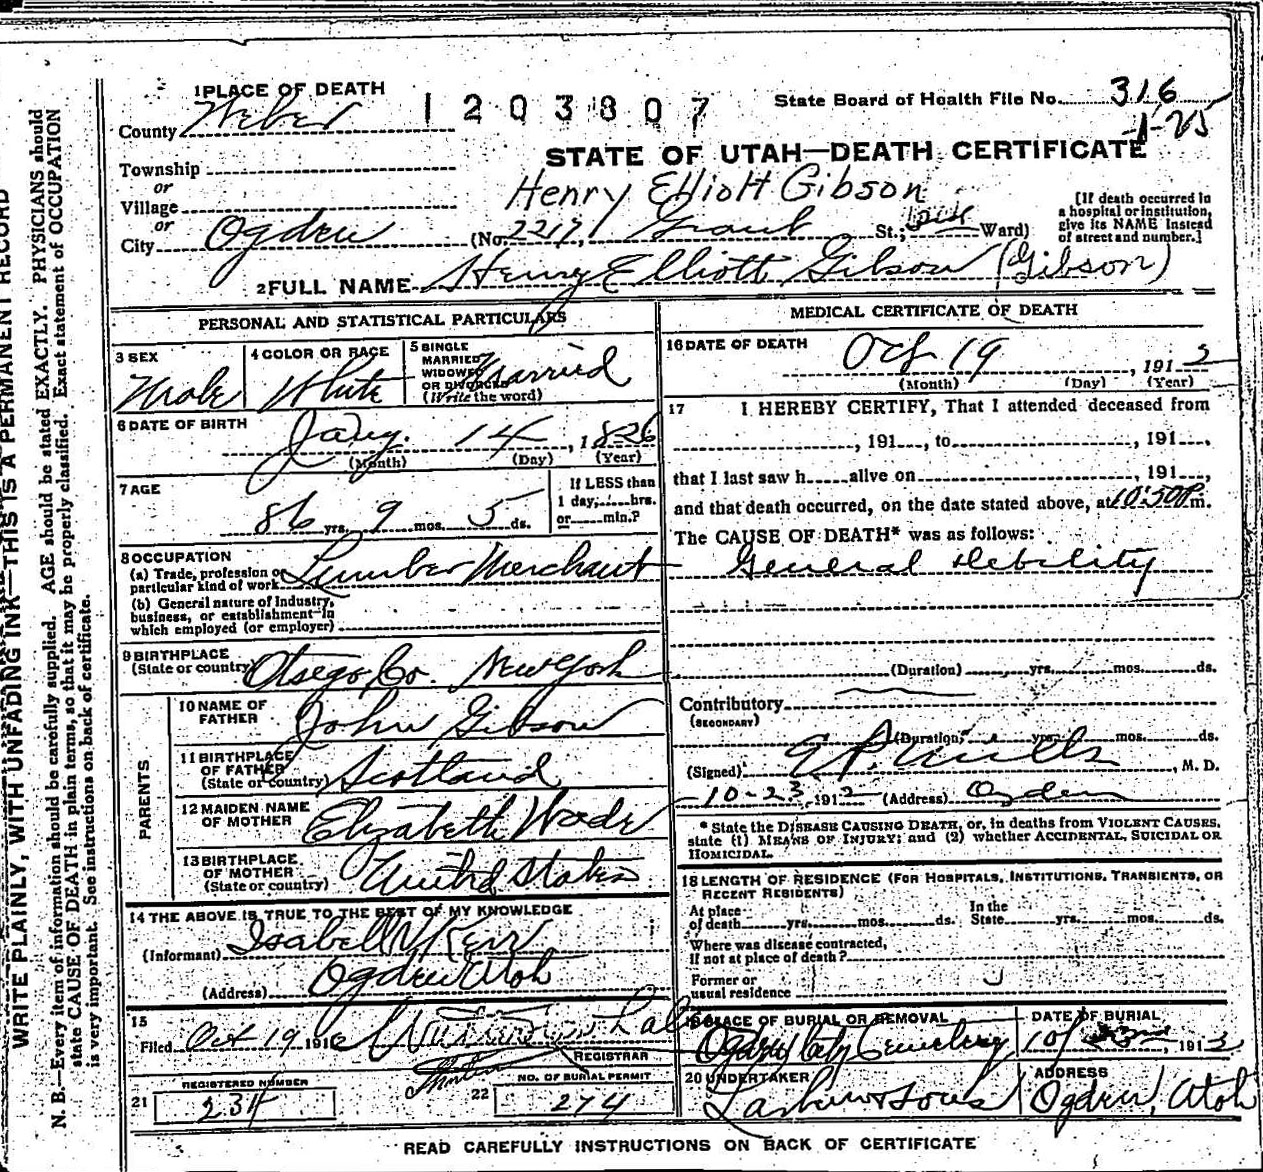 1 PLACE OF DEATH
1203807
State Board of Health File No. 316
County Weber
1-25
STATE OF UTAH—DEATH CERTIFICATE
Township
or
Henry Elliott Gibson
Village
or
City Ogden (No. 2217, Grant St.; Ward)
[If death occurred in a hospital or institution, give its NAME instead of street and number.]
2 FULL NAME Henry Elliott Gibson (Gibson)
PERSONAL AND STATISTICAL PARTICULARS
3 SEX Male
4 COLOR OR RACE White
5 SINGLE MARRIED WIDOWED OR DIVORCED (Write the word) Married
6 DATE OF BIRTH Jany. 14, 1826
(Month) (Day) (Year)
7 AGE 86 yrs. 9 mos. 5 ds.
If LESS than 1 day, hrs. or min.?
8 OCCUPATION
(a) Trade, profession or particular kind of work Lumber Merchant
(b) General nature of industry, business, or establishment in which employed (or employer)
9 BIRTHPLACE (State or country) Otsego, Co. New York
PARENTS
10 NAME OF FATHER John Gibson
11 BIRTHPLACE OF FATHER (State or country) Scotland
12 MAIDEN NAME OF MOTHER Elizabeth Wade
13 BIRTHPLACE OF MOTHER (State or country) United States
14 THE ABOVE IS TRUE TO THE BEST OF MY KNOWLEDGE
(Informant) Isabell N Kerr
(Address) Ogden Utah
15
Filed Oct 19 191
REGISTRAR
REGISTERED NUMBER
21 234
NO. OF BURIAL PERMIT
22 274
MEDICAL CERTIFICATE OF DEATH
16 DATE OF DEATH Oct 19, 1912
(Month) (Day) (Year)
17 I HEREBY CERTIFY, That I attended deceased from
, 191 , to , 191 ,
that I last saw h alive on , 191 ,
and that death occurred, on the date stated above, at 10:50 P. m.
The CAUSE OF DEATH* was as follows:
General Debility
(Duration) yrs. mos. ds.
Contributory
(SECONDARY)
(Duration) yrs. mos. ds.
(Signed) E P. Mills, M. D.
10-23, 1912 (Address) Ogden
* State the DISEASE CAUSING DEATH, or, in deaths from VIOLENT CAUSES, state (1) MEANS OF INJURY; and (2) whether ACCIDENTAL, SUICIDAL OR HOMICIDAL.
18 LENGTH OF RESIDENCE (FOR HOSPITALS, INSTITUTIONS, TRANSIENTS, OR RECENT RESIDENTS)
At place of death yrs. mos. ds. In the State yrs. mos. ds.
Where was disease contracted, if not at place of death?
Former or usual residence
19 PLACE OF BURIAL OR REMOVAL Ogden City Cemetery
DATE OF BURIAL 10/ , 1912
20 UNDERTAKER Larkin & Sons
ADDRESS Ogden, Utah
READ CAREFULLY INSTRUCTIONS ON BACK OF CERTIFICATE
WRITE PLAINLY, WITH UNFADING INK—THIS IS A PERMANENT RECORD
N. B.—Every item of information should be carefully supplied. AGE should be stated EXACTLY. PHYSICIANS should
state CAUSE OF DEATH in plain terms, so that it may be properly classified. Exact statement of OCCUPATION
is very important. See instructions on back of certificate.